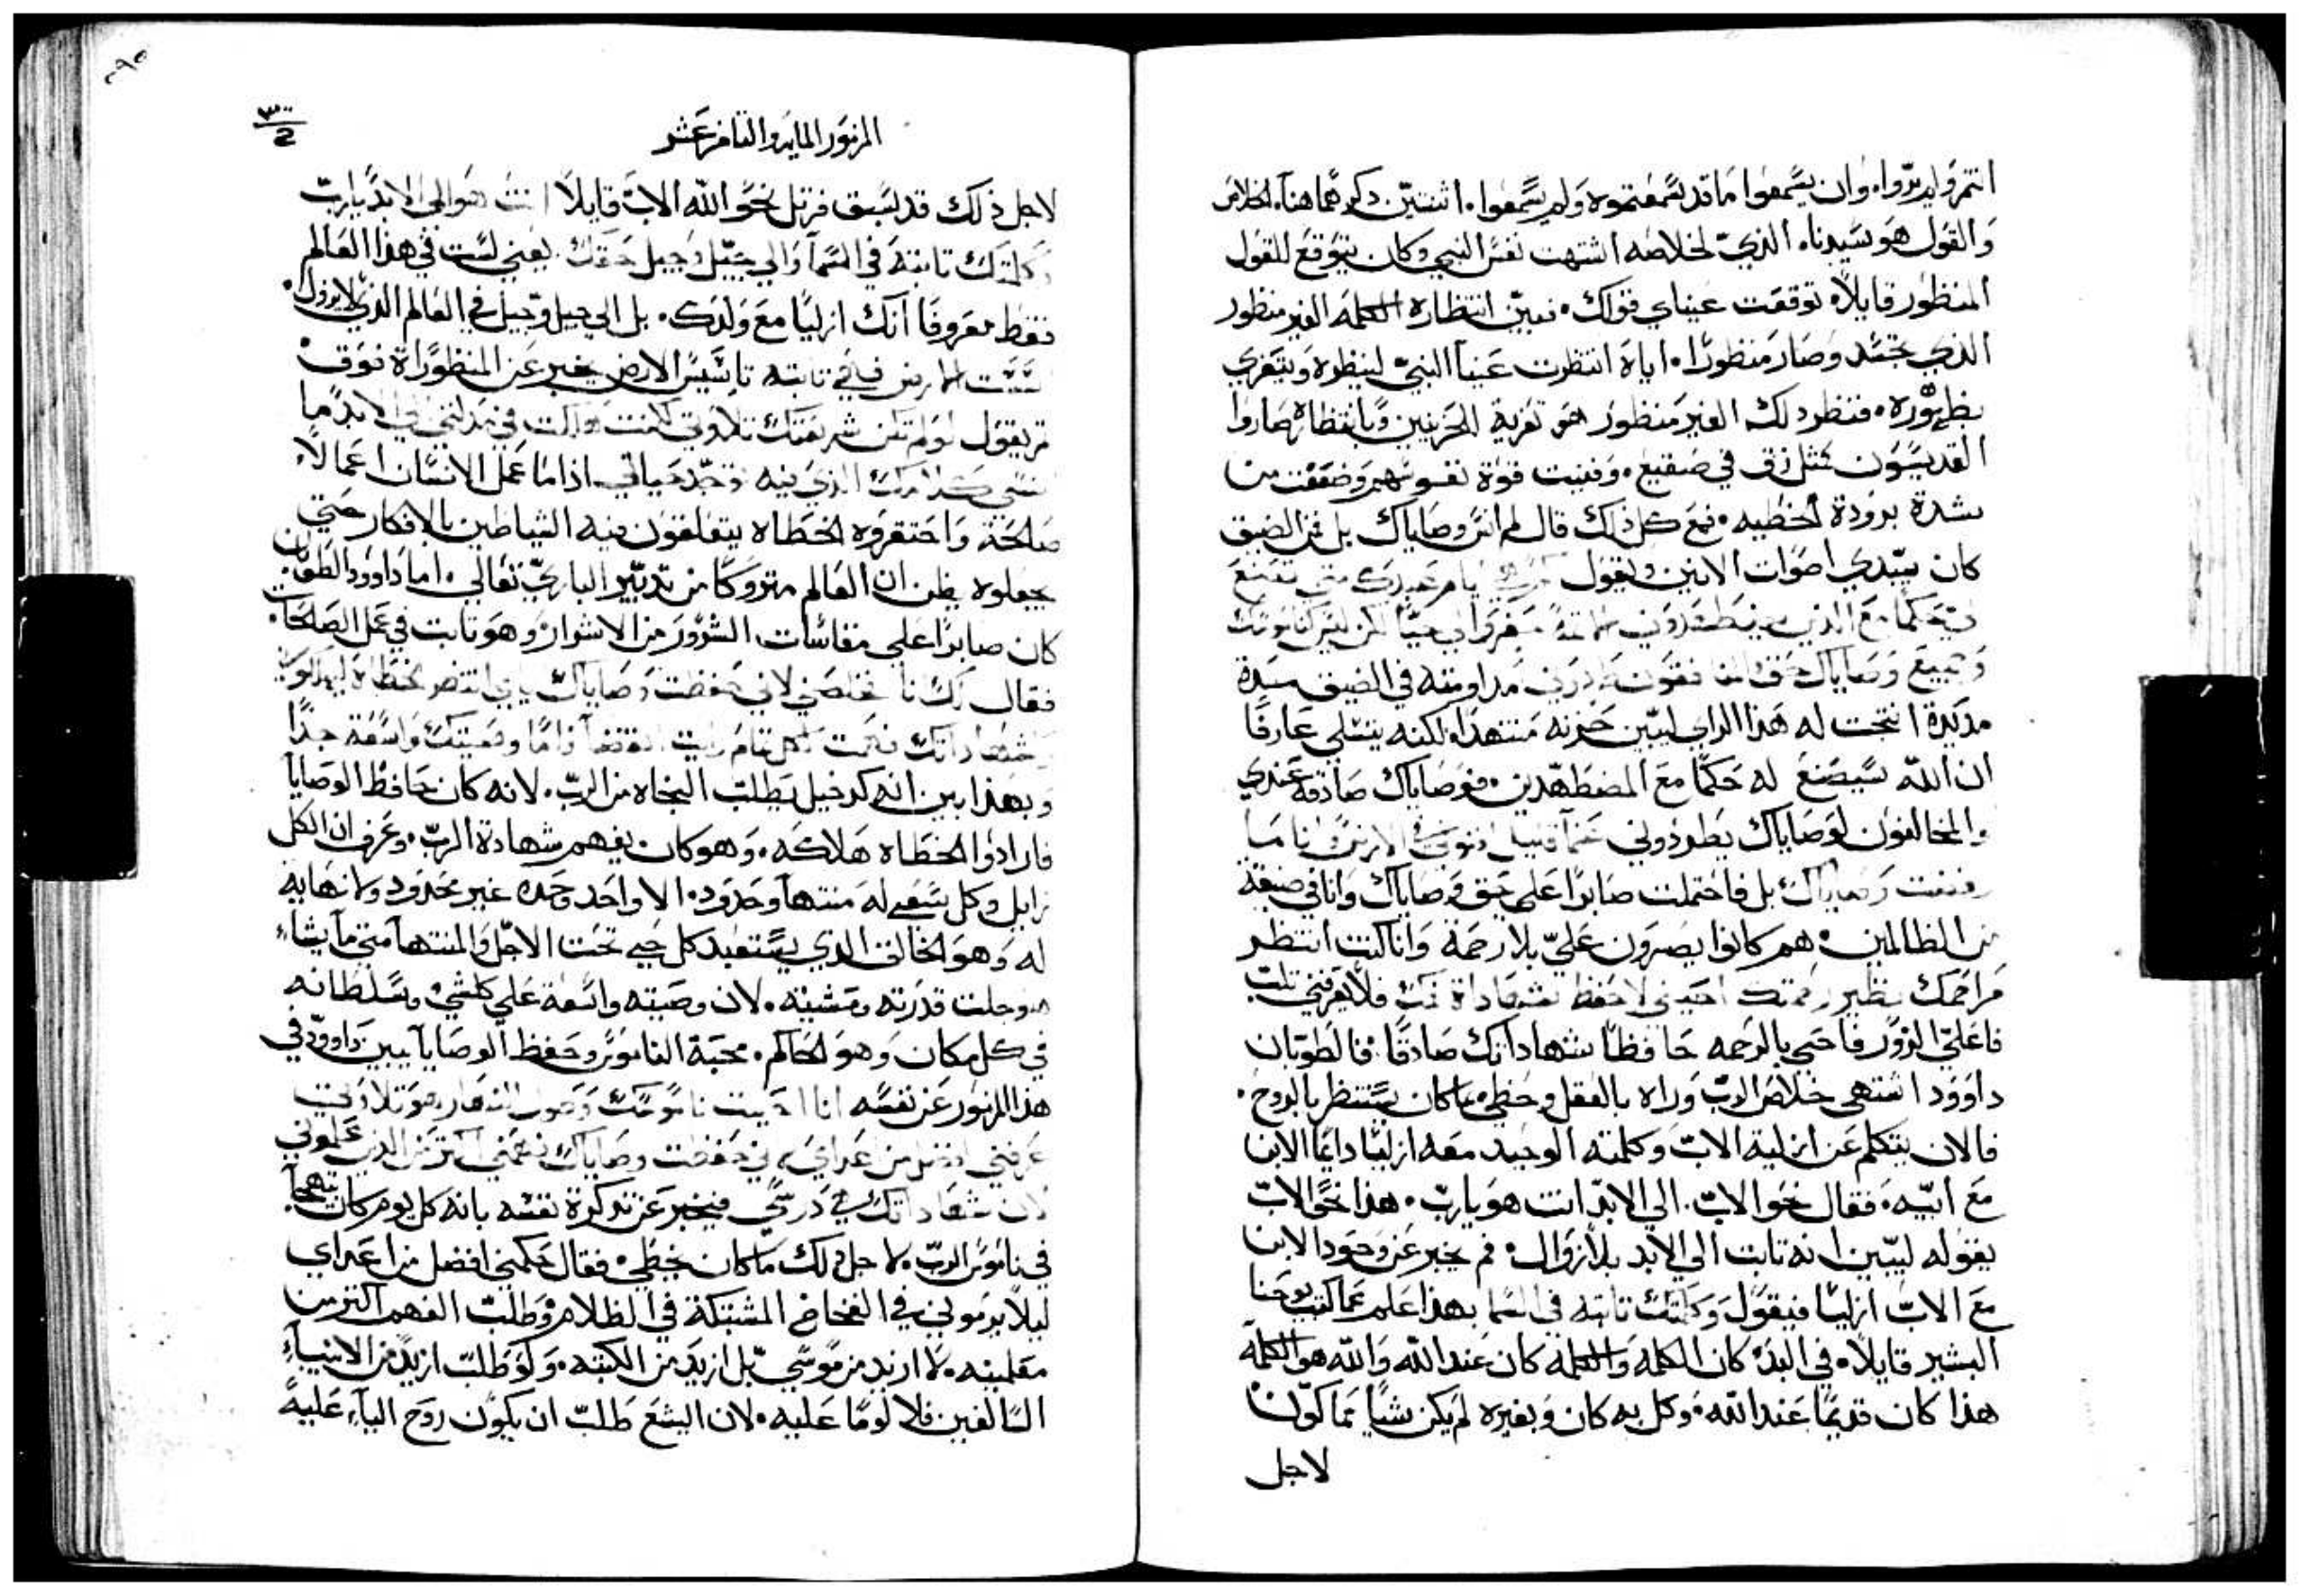 انتم ولم يروا. وان يسمعوا ما قد سمعتموه ولم يسمعوا. اثنتين ذكرهما هنا. الخلاص
والقول هو سيدنا. الذي لخلاصه اشتهت نفس النبي وكان يتوقع للقول
المنظور قايلاً توقفت عيناي قولك. فبين انتظاره الكلمه الغير منظور
الذي تجسد وصار منظورًا. اياه انتظرت عينا النبي لينظره ويتعزي
بظهوره. فنظر ذلك الغير منظور هو تعزية الحزينين وبانتظاره صاروا
القديسون كمثل زق في صقيع. وفنيت قوة نفوسهم وضعفت من
شدة برودة الخطيه. فمع كل ذلك قال لم انس وصاياك بل من الضيق
كان يبتدي اصوات الانين ويقول كم هي ايام عبدك متي تصنع
لي حكمًا مع الذين يضطهدوني
وجميع وصاياك حق مداومته في الضيق شدة
مديدة انتجت له هذا الراي ليبين حزنه متنهدًا. لكنه يتسلي عارفًا
ان الله سيصنع له حكمًا مع المضطهدين. فوصاياك صادقه عندي
والمخالفون لوصاياك يطردوني عما قليل افنوني في الارض وانا ما
رفضت وصاياك بل فاحتملت صابرًا على حق وصاياك وانا في ضيقة
من الظالمين. هم كانوا يصرون عليّ بلا رحمة وانا كنت انتظر
مراحمك نظير رحمتك احيني لاحفظ شهاداة فمك فلا يعرفني ثلب
فاعلي الزور فاحيي بالرحمه حافظًا شهاداتك صادقًا. فالطوبان
داوود اشتهى خلاص الرب وراه بالعقل وحظي بما كان يستنظر بالروح.
فالان يتكلم عن ازلية الاب وكلمته الوحيد معه ازليًا دايمًا الابن
مع ابيه. فقال نحو الاب. الي الابد انت هو يارب. هذا نحو الاب
بقوله ليبين انه ثابت الي الابد بلا زوال. ثم يخبر عن وجود الابن
مع الاب ازليًا فيقول وكلمتك ثابته في السما بهذا علم عما كتب يوحنا
البشير قايلاً. في البدء كان الكلمه والكلمه كان عند الله والله هو الكلمه
هذا كان قديمًا عند الله. وكل به كان وبغيره لم يكن شيًا مما كوّن
لاجل
٢٩٥
٣٠٠
2
المزمور المايه والثامن عشر
لاجل ذلك قد سبق فرتل نحو الله الاب قايلاً انت هو الي الابد يارب
وكلمتك ثابته في السما والي جيل وجيل حقك يعني لست في هذا العالم
فقط معروفًا انك ازليًا مع ولدك. بل الي جيل وجيل في العالم الذي لا يزول.
اسست الارض فهي ثابته تاسيس الارض يخبر عن المنظوراة فوق
ثم يقول لو لم تكن شريعتك تلاوتي لكنت هلكت في مذلتي الي الابد ما
انسي كلامك الذي فيه توجد حياتي اذا ما عمل الانسان اعمالاً
صالحة واحتقروه الخطاه يتقلقون فيه الشياطين بالافكار حتي
يجعلوه يظن ان العالم متروكًا من تدبير الباري تعالي. اما داوود الطوبان
كان صابرًا علي مقاسات الشرور من الاشرار وهو ثابت في عمل الصالحات.
فقال لك انا فخلصني لاني حفظت وصاياك اياي انتضر الخطاه ليهلكوني
شهاداتك فهمت لكل تمام رايت انقضا اما وصيتك واسعة جدًا
وبهذا يبين انه كدخيل يطلب النجاه من الرب. لانه كان حافظ الوصايا
فارادوا الخطاه هلاكه. وهو كان يفهم شهادة الرب. وعرف ان الكل
زايل وكل شي له منتها وحدود. الا واحد وحده غير محدود ولا نهاية
له وهو الخالق الذي يستعبد كل حي تحت الاجل والمنتها متي ما يشاء
هو جلت قدرته ومشيته. لان وصيته واسعة علي كلشي وسلطانه
في كل مكان وهو الحاكم. محبة الناموس وحفظ الوصايا يبين داوود في
هذا المزمور عن نفسه انا احببت ناموسك وطول النهار هو تلاوتي
عرفتني افضل من اعداي لاني حفظت وصاياك فهمني اكثر من الذين علموني
لان شهاداتك هي درسي فيخبر عن تذكرة نفسه بانه كل يوم كان يتهجا
في ناموس الرب. لاجل ذلك ما كان يخطي. فقال حكمني افضل من اعداي
ليلاً يرموني في الفخاخ المشتبكة في الظلام وطلب الفهم اكثر من
معلمينه. لا ازيد من موسي بل ازيد من الكتبه. ولو طلب ازيد من الانبياء
السالفين فلا لومًا عليه. لان اليشع طلب ان يكون روح اليآء عليه